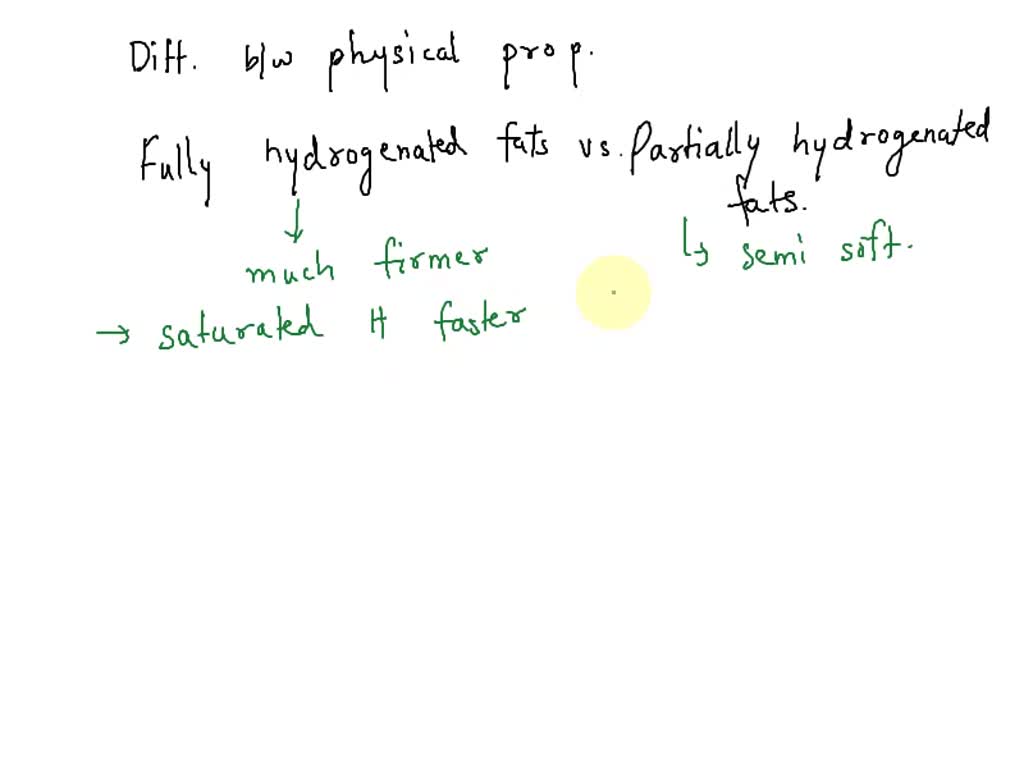 Diff. b/w physical prop.
Fully hydrogenated fats vs. Partially hydrogenated
fats.
↓ ↳ semi soft.
much firmer
→ saturated H faster